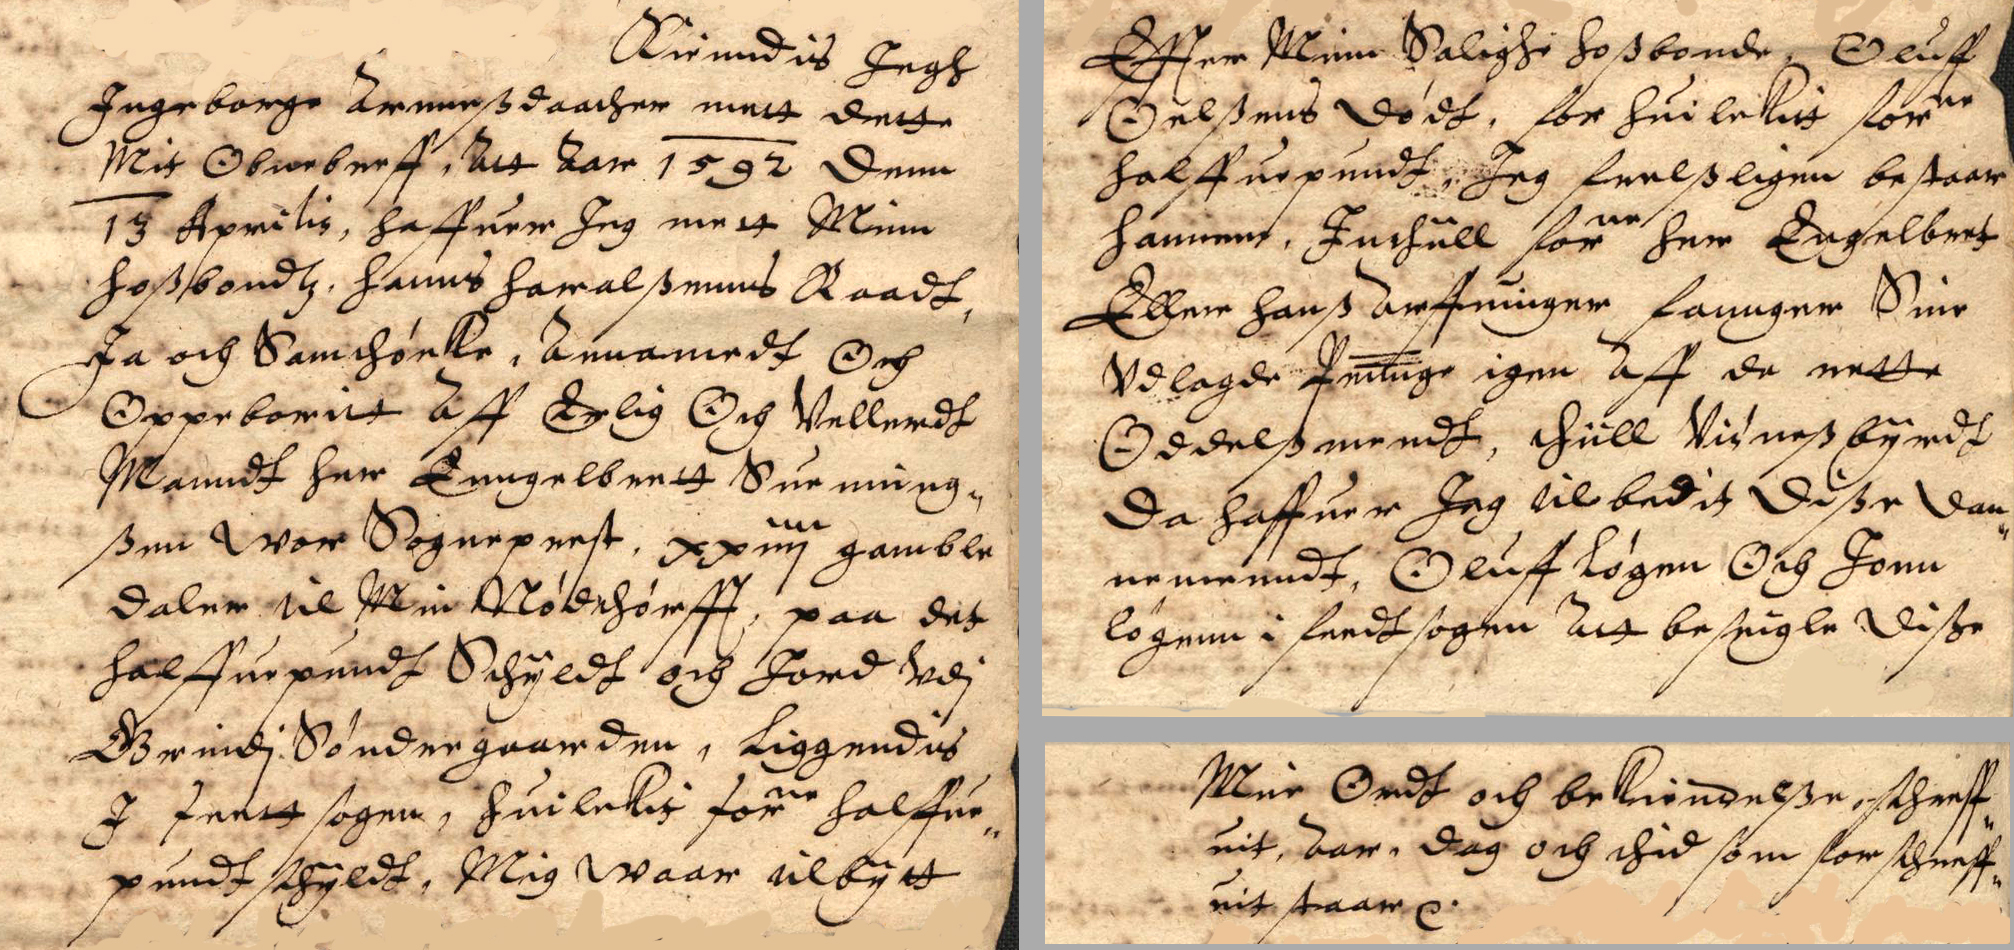 Kiendis Jegh
Ingeborge Arnneßdaather mett dette
Mit Obnebreff, Att Aar 1592 Denn
13 Aprilis, haffuer Jeg mett Minn
hoßbondtz, hanns haralßenns Raadt,
Ja och Samthøcke, Annamedt Och
Oppeboritt Aff Erlig Och Vellerdt
Manndt her Enngelbrett Suenning„
ßen wor Sogneprest, xxiiij gamble
daler til Min Nødthørfft, paa det
halffuepundt Schÿldt och Jord Vdj
Grindj Søndergaarden, Liggendis
J Feett sogen, huilckit forne halffue„
pundt schÿldt, Mig waar tilbÿtt
Effter Minn Salighe hoßbonde, Oluff
Oelßens Dødt, for huilckitt forne
halffuepundt, Jeg frelßligen bestaar
hannem, Inthill forne her Engelbret
Eller hanß Arffuinger fannger Sine
Vdlagde Peninge igen Aff de rette
Oddelßmendt, thill Vißneßbÿrdt
Da haffuer Jeg tilbedit Diße Dan„
nemenndt, Oluff Løgen Och Jonn
løgenn i feedt sogen Att beseigle Diße
Mine Ordt och bekiendelße, schreff„
uit, Aar, dag och thid som forschreff„
uit staar